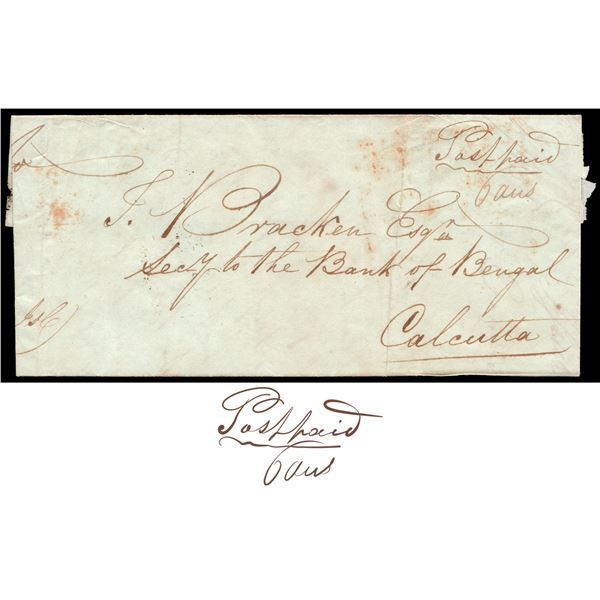 Postpaid
6 ans
J. N Bracken Esqr
Secy to the Bank of Bengal
Calcutta
Postpaid
6 ans